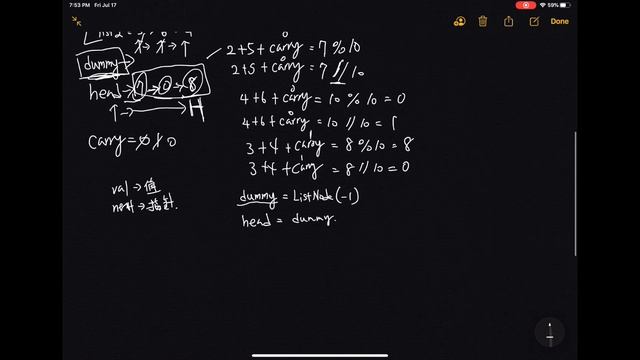 7:53 PM Fri Jul 17
59%
Done
dummy
head → 7 → 0 → 8
carry = 0 1 0
val → 值
next → 指针.
2+5+carry = 7 % 10
2+5+carry = 7 // 10
4+6+carry = 10 % 10 = 0
4+6+carry = 10 // 10 = 1
3+4+carry = 8 % 10 = 8
3+4+carry = 8 // 10 = 0
dummy = ListNode(-1)
head = dummy.